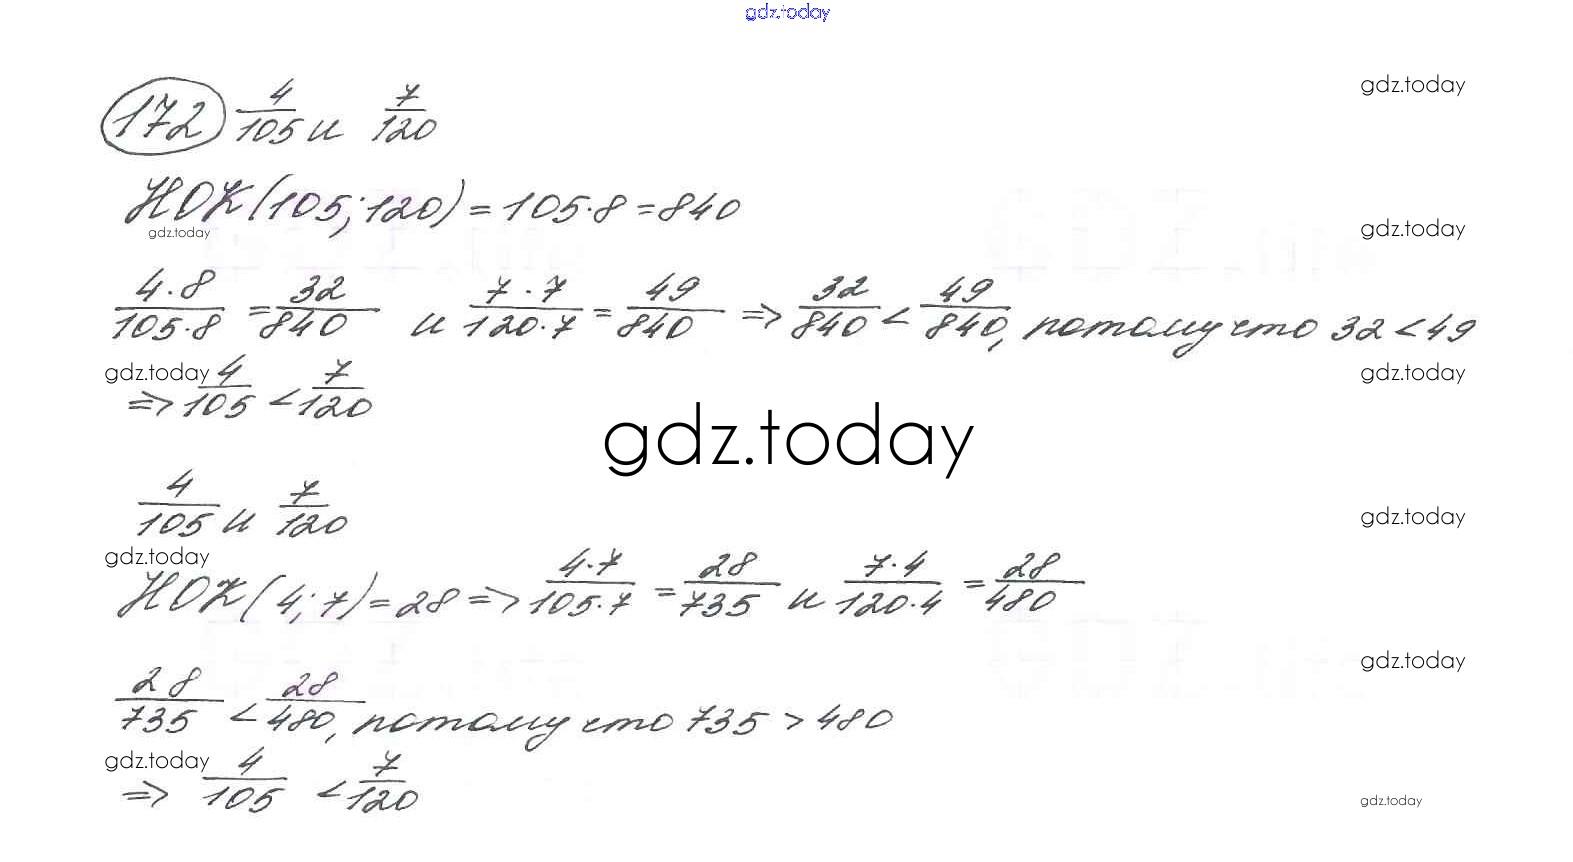 gdz.today
172 4/105 и 7/120
gdz.today
НОК(105;120) = 105·8 = 840
gdz.today
gdz.today
4·8/105·8 = 32/840 и 7·7/120·7 = 49/840 => 32/840 < 49/840, потому что 32 < 49
gdz.today
gdz.today
=> 4/105 < 7/120
gdz.today
4/105 и 7/120
gdz.today
gdz.today
НОК(4;7) = 28 => 4·7/105·7 = 28/735 и 7·4/120·4 = 28/480
gdz.today
28/735 < 28/480, потому что 735 > 480
gdz.today
=> 4/105 < 7/120
gdz.today